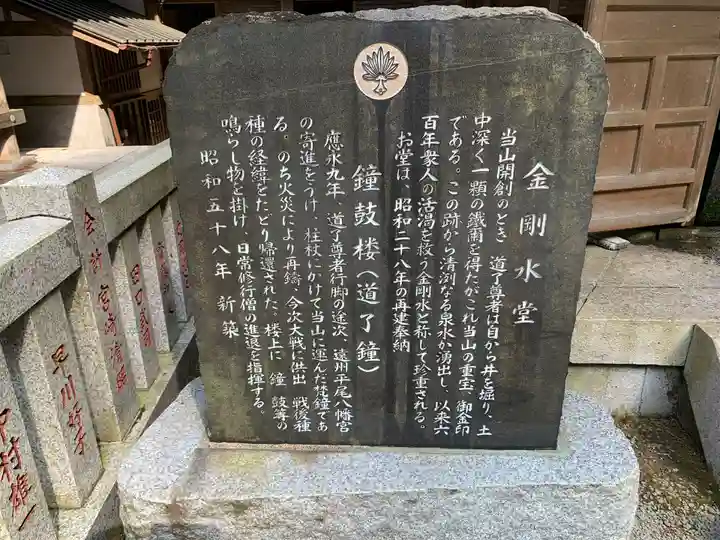 金剛水堂
当山開創のとき 道了尊者は自から井を掘り、土
中深く一顆の鐵爾を得たがこれ当山の重宝、御金印
である。この跡から清冽なる泉水か湧出し、以来六
百年衆人の活渇を救う金剛水と称して珍重される。
お堂は、昭和二十八年の再建奉納
鐘鼓楼(道了鐘)
應永九年、道了尊者行脚の途次、遠州平尾八幡宮
の寄進をうけ、柱杖にかけて当山に運んだ梵鐘であ
る。のち火災により再鋳、今次大戦に供出 戦後種
種の経緯をたどり帰還された。楼上に 鐘 鼓等の
鳴らし物を掛け、日常修行僧の進退を指揮する。
昭和五十八年 新築
早川
中村雄一